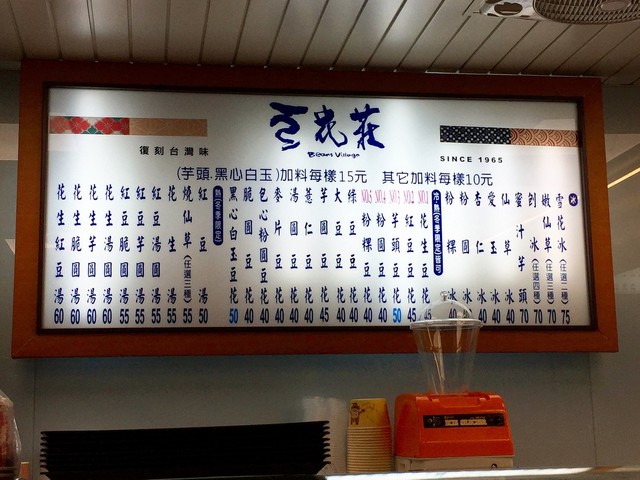 豆花莊
Beans Village
復刻台灣味
SINCE 1965
(芋頭.黑心白玉)加料每樣15元 其它加料每樣10元
雪花冰(任選二種) 75
嫩仙草冰(任選三種) 70
刨冰(任選四種) 70
蜜汁芋頭 70
仙草冰 40
愛玉冰 40
杏仁冰 40
粉圓冰 40
粉粿冰 40
冷.熱(冬季限定)皆可
NO.3 芋頭豆花 50
NO.4 粉圓豆花 40
NO.5 粉粿豆花 40
綠豆豆花 40
大豆豆花 40
芋圓豆花 45
薏仁豆花 40
湯圓豆花 40
麥片豆花 40
包心粉圓豆花 40
脆圓豆花 40
黑心白玉豆花 50
熱(冬季限定)
紅豆湯 50
燒仙草(任選三種) 55
花生湯 55
紅豆湯圓湯 55
紅豆芋圓湯 55
紅豆脆圓湯 55
花生湯圓湯 60
花生芋圓湯 60
花生脆圓湯 60
花生紅豆湯 60